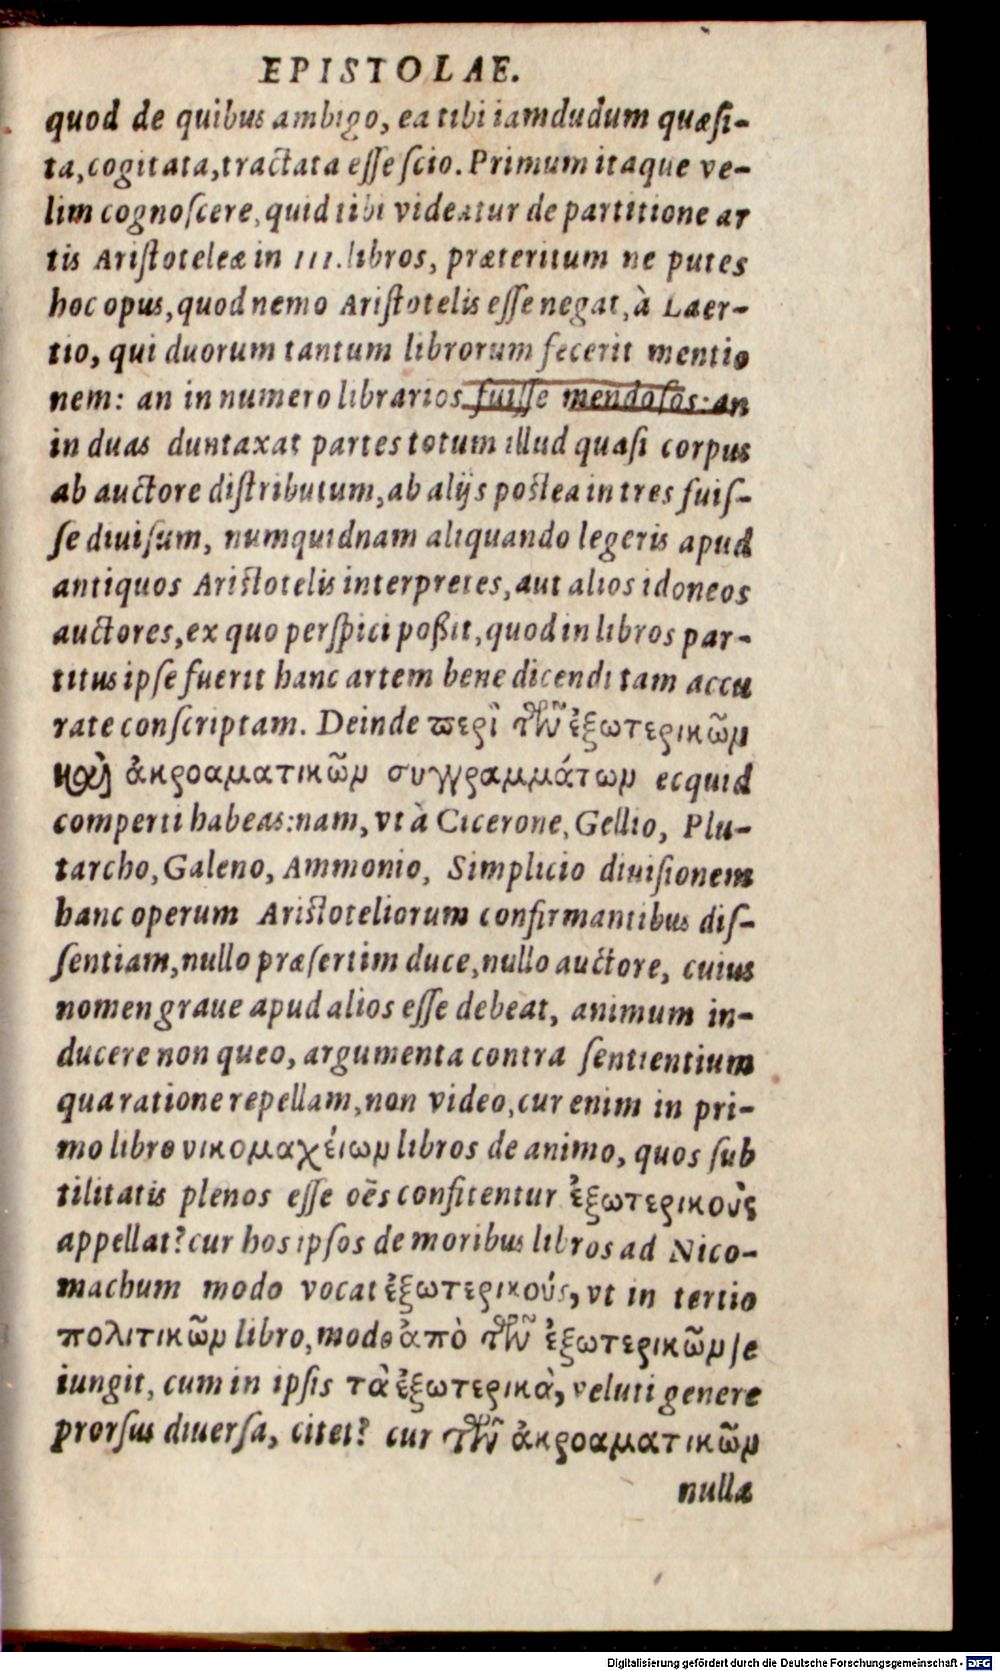 EPISTOLAE.
quod de quibus ambigo, ea tibi iamdudum quæsi-
ta, cogitata, tractata esse scio. Primum itaque ve-
lim cognoscere, quid tibi videatur de partitione ar
tis Aristoteleæ in III. libros, præteritum ne putes
hoc opus, quod nemo Aristotelis esse negat, à Laer-
tio, qui duorum tantum librorum fecerit mentio
nem: an in numero librarios fuisse mendosos: an
in duas duntaxat partes totum illud quasi corpus
ab auctore distributum, ab alijs postea in tres fuis-
se diuisum, numquidnam aliquando legeris apud
antiquos Aristotelis interpretes, aut alios idoneos
auctores, ex quo perspici poßit, quod in libros par-
titus ipse fuerit hanc artem bene dicendi tam accu
rate conscriptam. Deinde περὶ τῶν ἐξωτερικῶν
καὶ ἀκροαματικῶν συγγραμμάτων ecquid
comperti habeas: nam, vt à Cicerone, Gellio, Plu-
tarcho, Galeno, Ammonio, Simplicio diuisionem
hanc operum Aristoteliorum confirmantibus dis-
sentiam, nullo præsertim duce, nullo auctore, cuius
nomen graue apud alios esse debeat, animum in-
ducere non queo, argumenta contra sentientium
qua ratione repellam, non video, cur enim in pri-
mo libro νικομαχείων libros de animo, quos sub
tilitatis plenos esse oēs confitentur ἐξωτερικοὺς
appellat? cur hos ipsos de moribus libros ad Nico-
machum modo vocat ἐξωτερικούς, vt in tertio
πολιτικῶν libro, modo ἀπὸ τῶν ἐξωτερικῶν se
iungit, cum in ipsis τὰ ἐξωτερικὰ, veluti genere
prorsus diuersa, citet? cur τῶν ἀκροαματικῶν
nulla
Digitalisierung gefördert durch die Deutsche Forschungsgemeinschaft - DFG